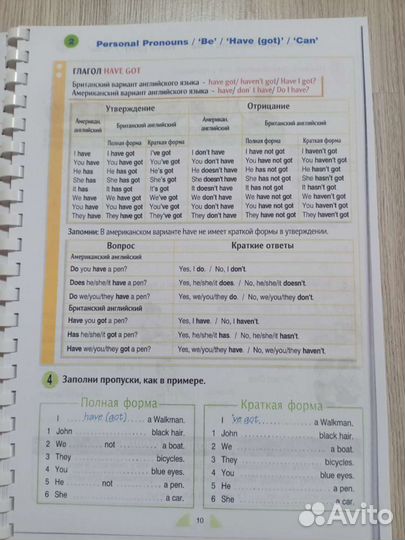 2 Personal Pronouns / 'Be' / 'Have (got)' / 'Can'
ГЛАГОЛ HAVE GOT
Британский вариант английского языка – have got/ haven't got/ Have I got?
Американский вариант английского языка – have/ don't have/ Do I have?
Утверждение Отрицание
Американ. английский Британский английский Американ. английский Британский английский
Полная форма Краткая форма Полная форма Краткая форма
I have I have got I've got I don't have I have not got I haven't got
You have You have got You've got You don't have You have not got You haven't got
He has He has got He's got He doesn't have He has not got He hasn't got
She has She has got She's got She doesn't have She has not got She hasn't got
It has It has got It's got It doesn't have It has not got It hasn't got
We have We have got We've got We don't have We have not got We haven't got
You have You have got You've got You don't have You have not got You haven't got
They have They have got They've got They don't have They have not got They haven't got
Запомни: В американском варианте have не имеет краткой формы в утверждении.
Вопрос Краткие ответы
Американский английский
Do you have a pen? Yes, I do. / No, I don't.
Does he/she/it have a pen? Yes, he/she/it does. / No, he/she/it doesn't.
Do we/you/they have a pen? Yes, we/you/they do. / No, we/you/they don't.
Британский английский
Have you got a pen? Yes, I have. / No, I haven't.
Has he/she/it got a pen? Yes, he/she/it has. / No, he/she/it hasn't.
Have we/you/they got a pen? Yes, we/you/they have. / No, we/you/they haven't.
4 Заполни пропуски, как в примере.
Полная форма
I have (got) a Walkman.
1 John black hair.
2 We not a boat.
3 They bicycles.
4 You blue eyes.
5 He not a pen.
6 She a car.
Краткая форма
I 've got a Walkman.
1 John black hair.
2 We a boat.
3 They bicycles.
4 You blue eyes.
5 He a pen.
6 She a car.
10
Avito